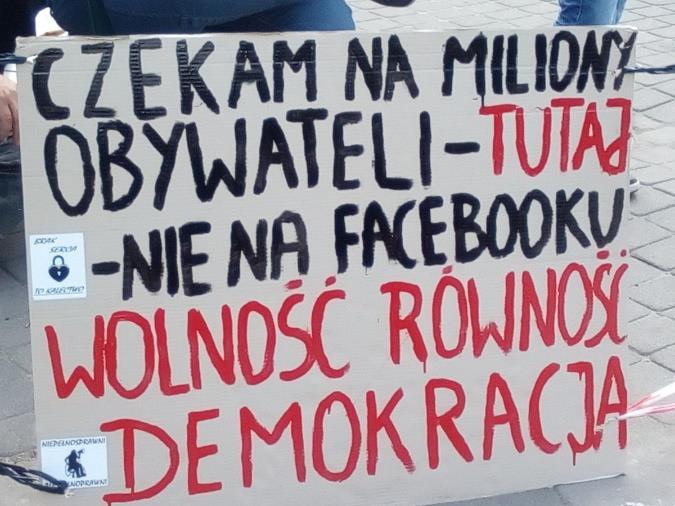 CZEKAM NA MILIONY
OBYWATELI-TUTAJ
-NIE NA FACEBOOKU
BRAK
SERCA
TO KALECTWO
WOLNOŚĆ RÓWNOŚĆ
DEMOKRACJA
NIEPEŁNOSPRAWNI